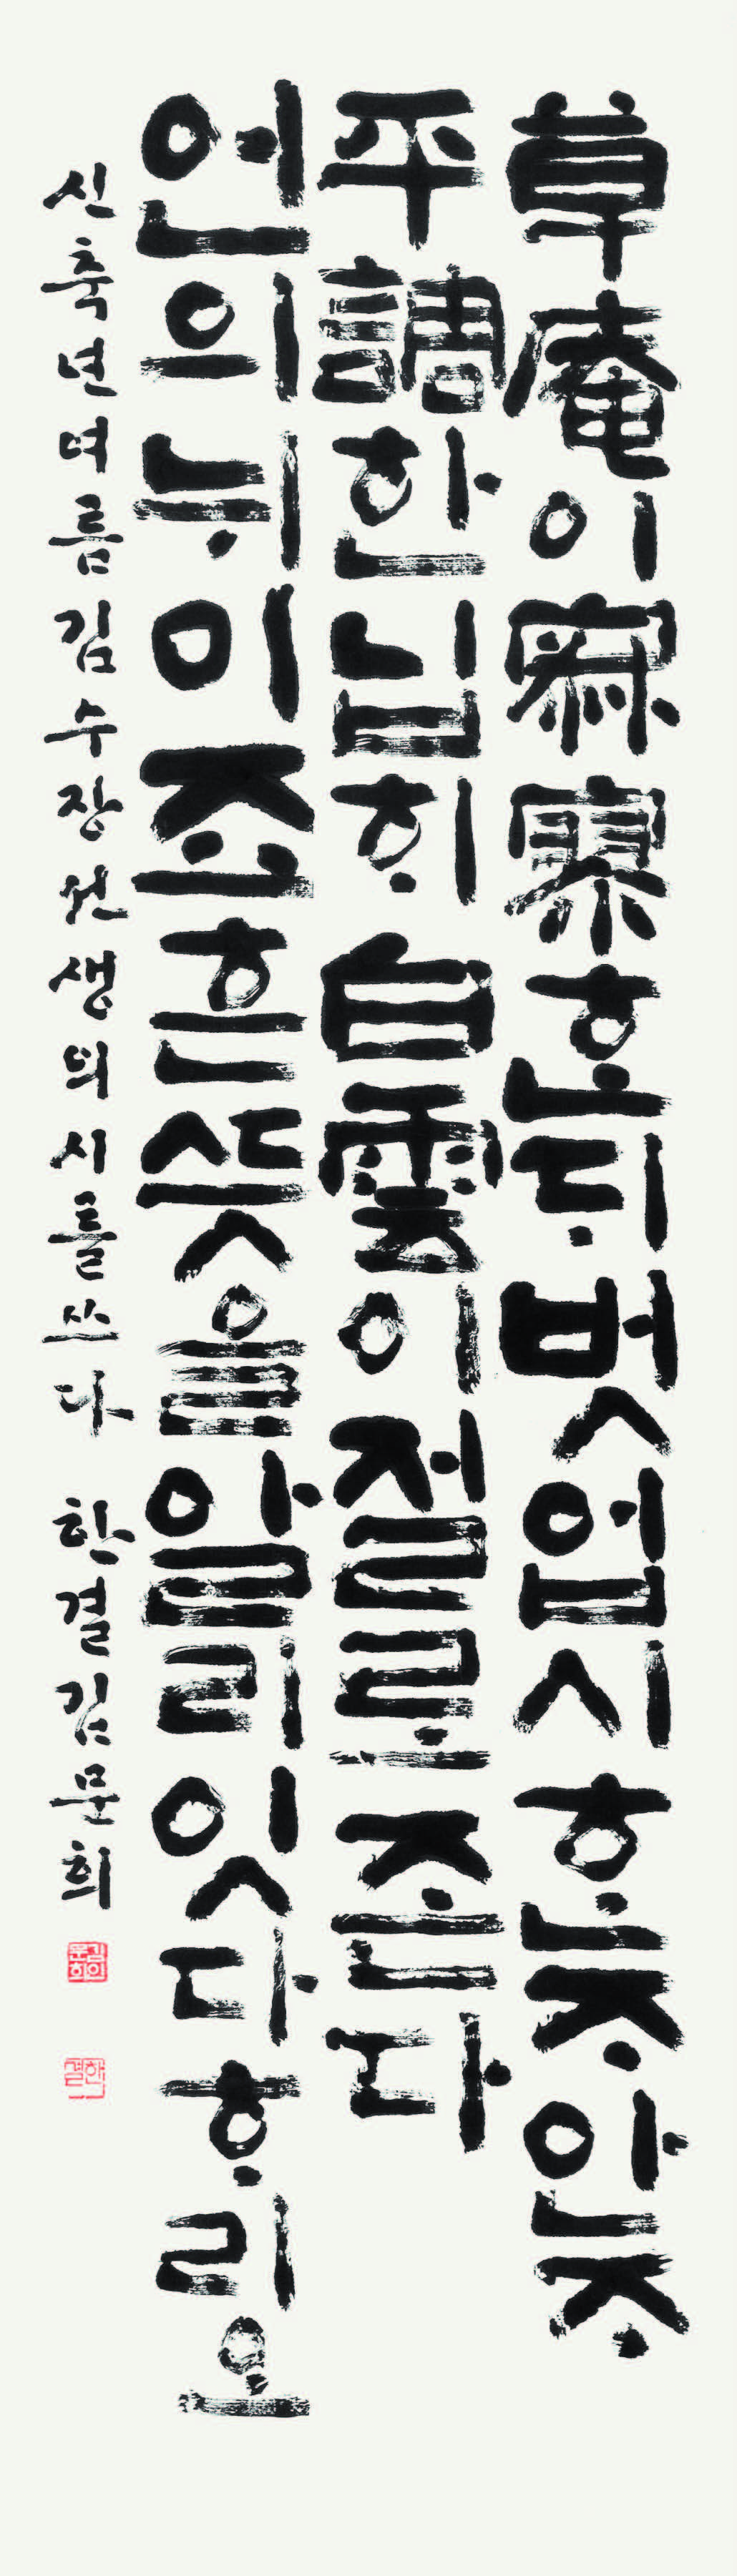 草庵이 寂寥ᄒᆞᆫᄃᆡ 벗 업시 ᄒᆞᆫᄌᆞ 안ᄌᆞ
平調 한 닙ᄒᆡ 白雲이 절로 존다
언의 뉘 이 죠흔 ᄯᅳᆺ을 알리 잇다 ᄒᆞ리오
신축년 녀름 김수장 선생의 시를 쓰다 한결 김문희